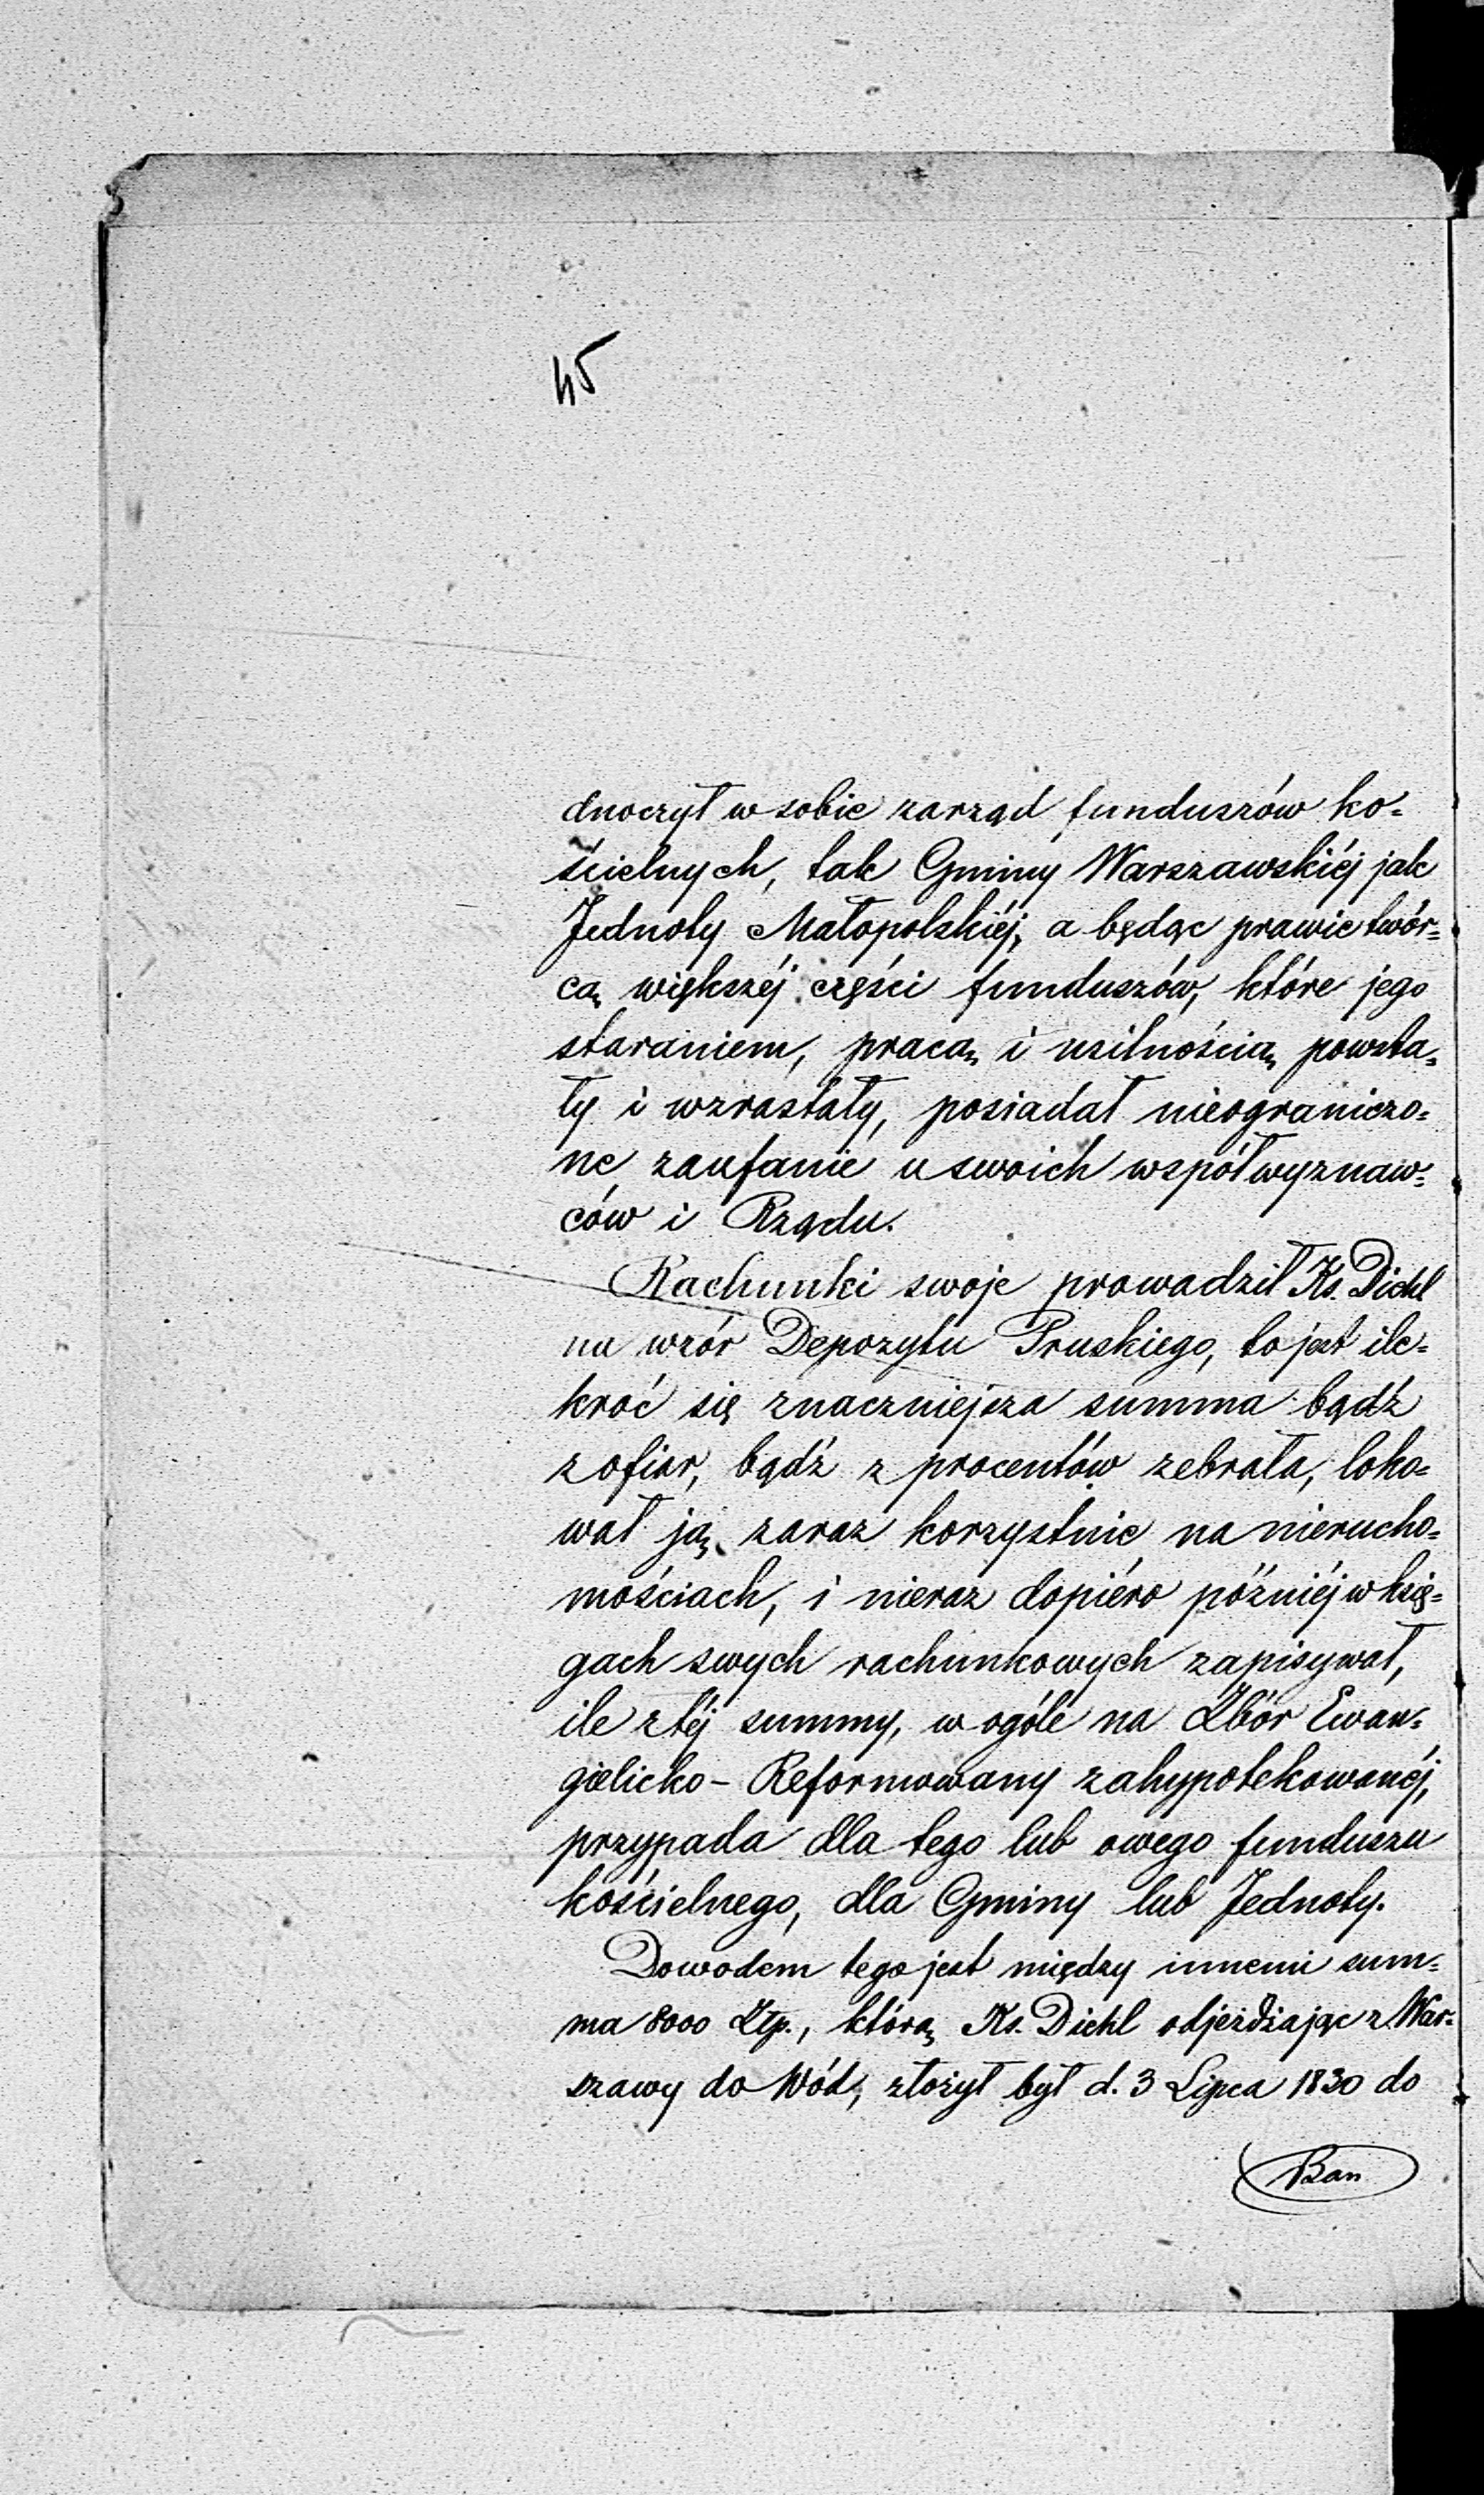 45
dnoczył w sobie zarząd funduszów ko=
ścielnych, tak Gminy Warszawskiéj jak
Jednoty Małopolskiéj, a będąc prawie twór=
cą większéj części funduszów, które jego
staraniem, pracą i usilnością powsta=
ły i wzrastały, posiadał nieograniczo=
ne zaufanie u swoich współwyznaw=
ców i Rządu.
Rachunki swoje prowadził Ks. Diehl
na wzór Depozytu Pruskiego, to jest ile=
kroć się znaczniejsza summa bądź
z ofiar, bądź z procentów zebrała, loko=
wał ją zaraz korzystnie na nierucho=
mościach, i nieraz dopiéro późniéj w księ=
gach swych rachunkowych zapisywał,
ile z téj summy, w ogóle na Zbór Ewan=
gielicko-Reformowany zahypotekowanéj,
przypada dla tego lub owego funduszu
kościelnego, dla Gminy lub Jednoty.
Dowodem tego jest między innemi sum=
ma 8000 Złp., którą Ks. Diehl odjeżdżając z War=
szawy do Wód, złożył był d. 3 Lipca 1830 do
Ban